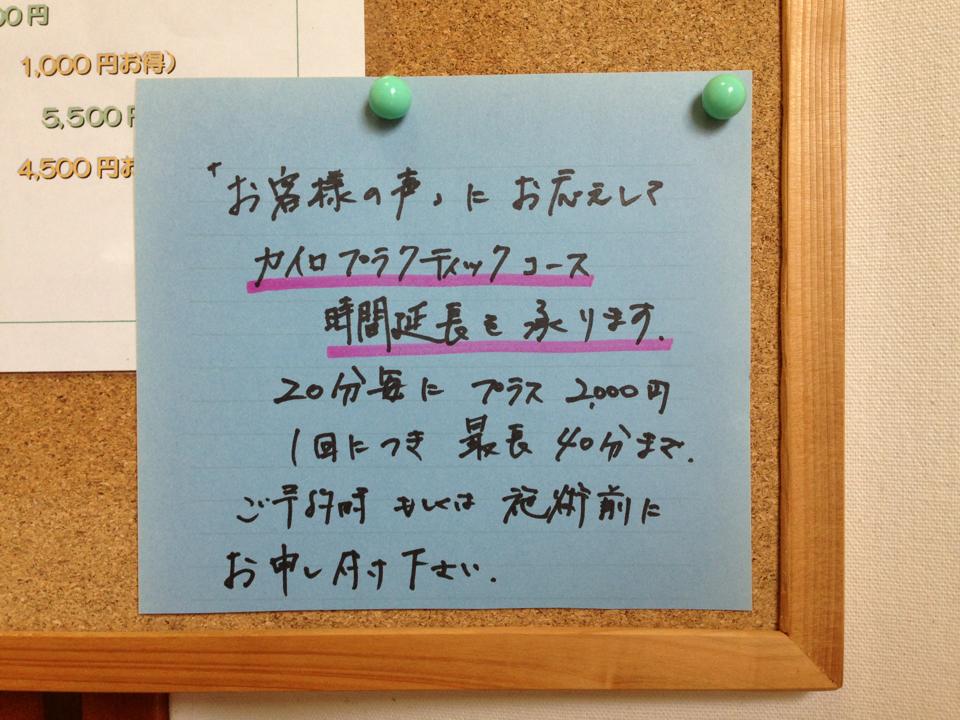 00円
1,000円お得)
5,500円
4,500円お
「お客様の声」にお応えして
カイロプラクティックコース
時間延長を承ります.
20分毎にプラス2,000円
1回につき最長40分まで.
ご予約時もしくは施術前に
お申し付け下さい.